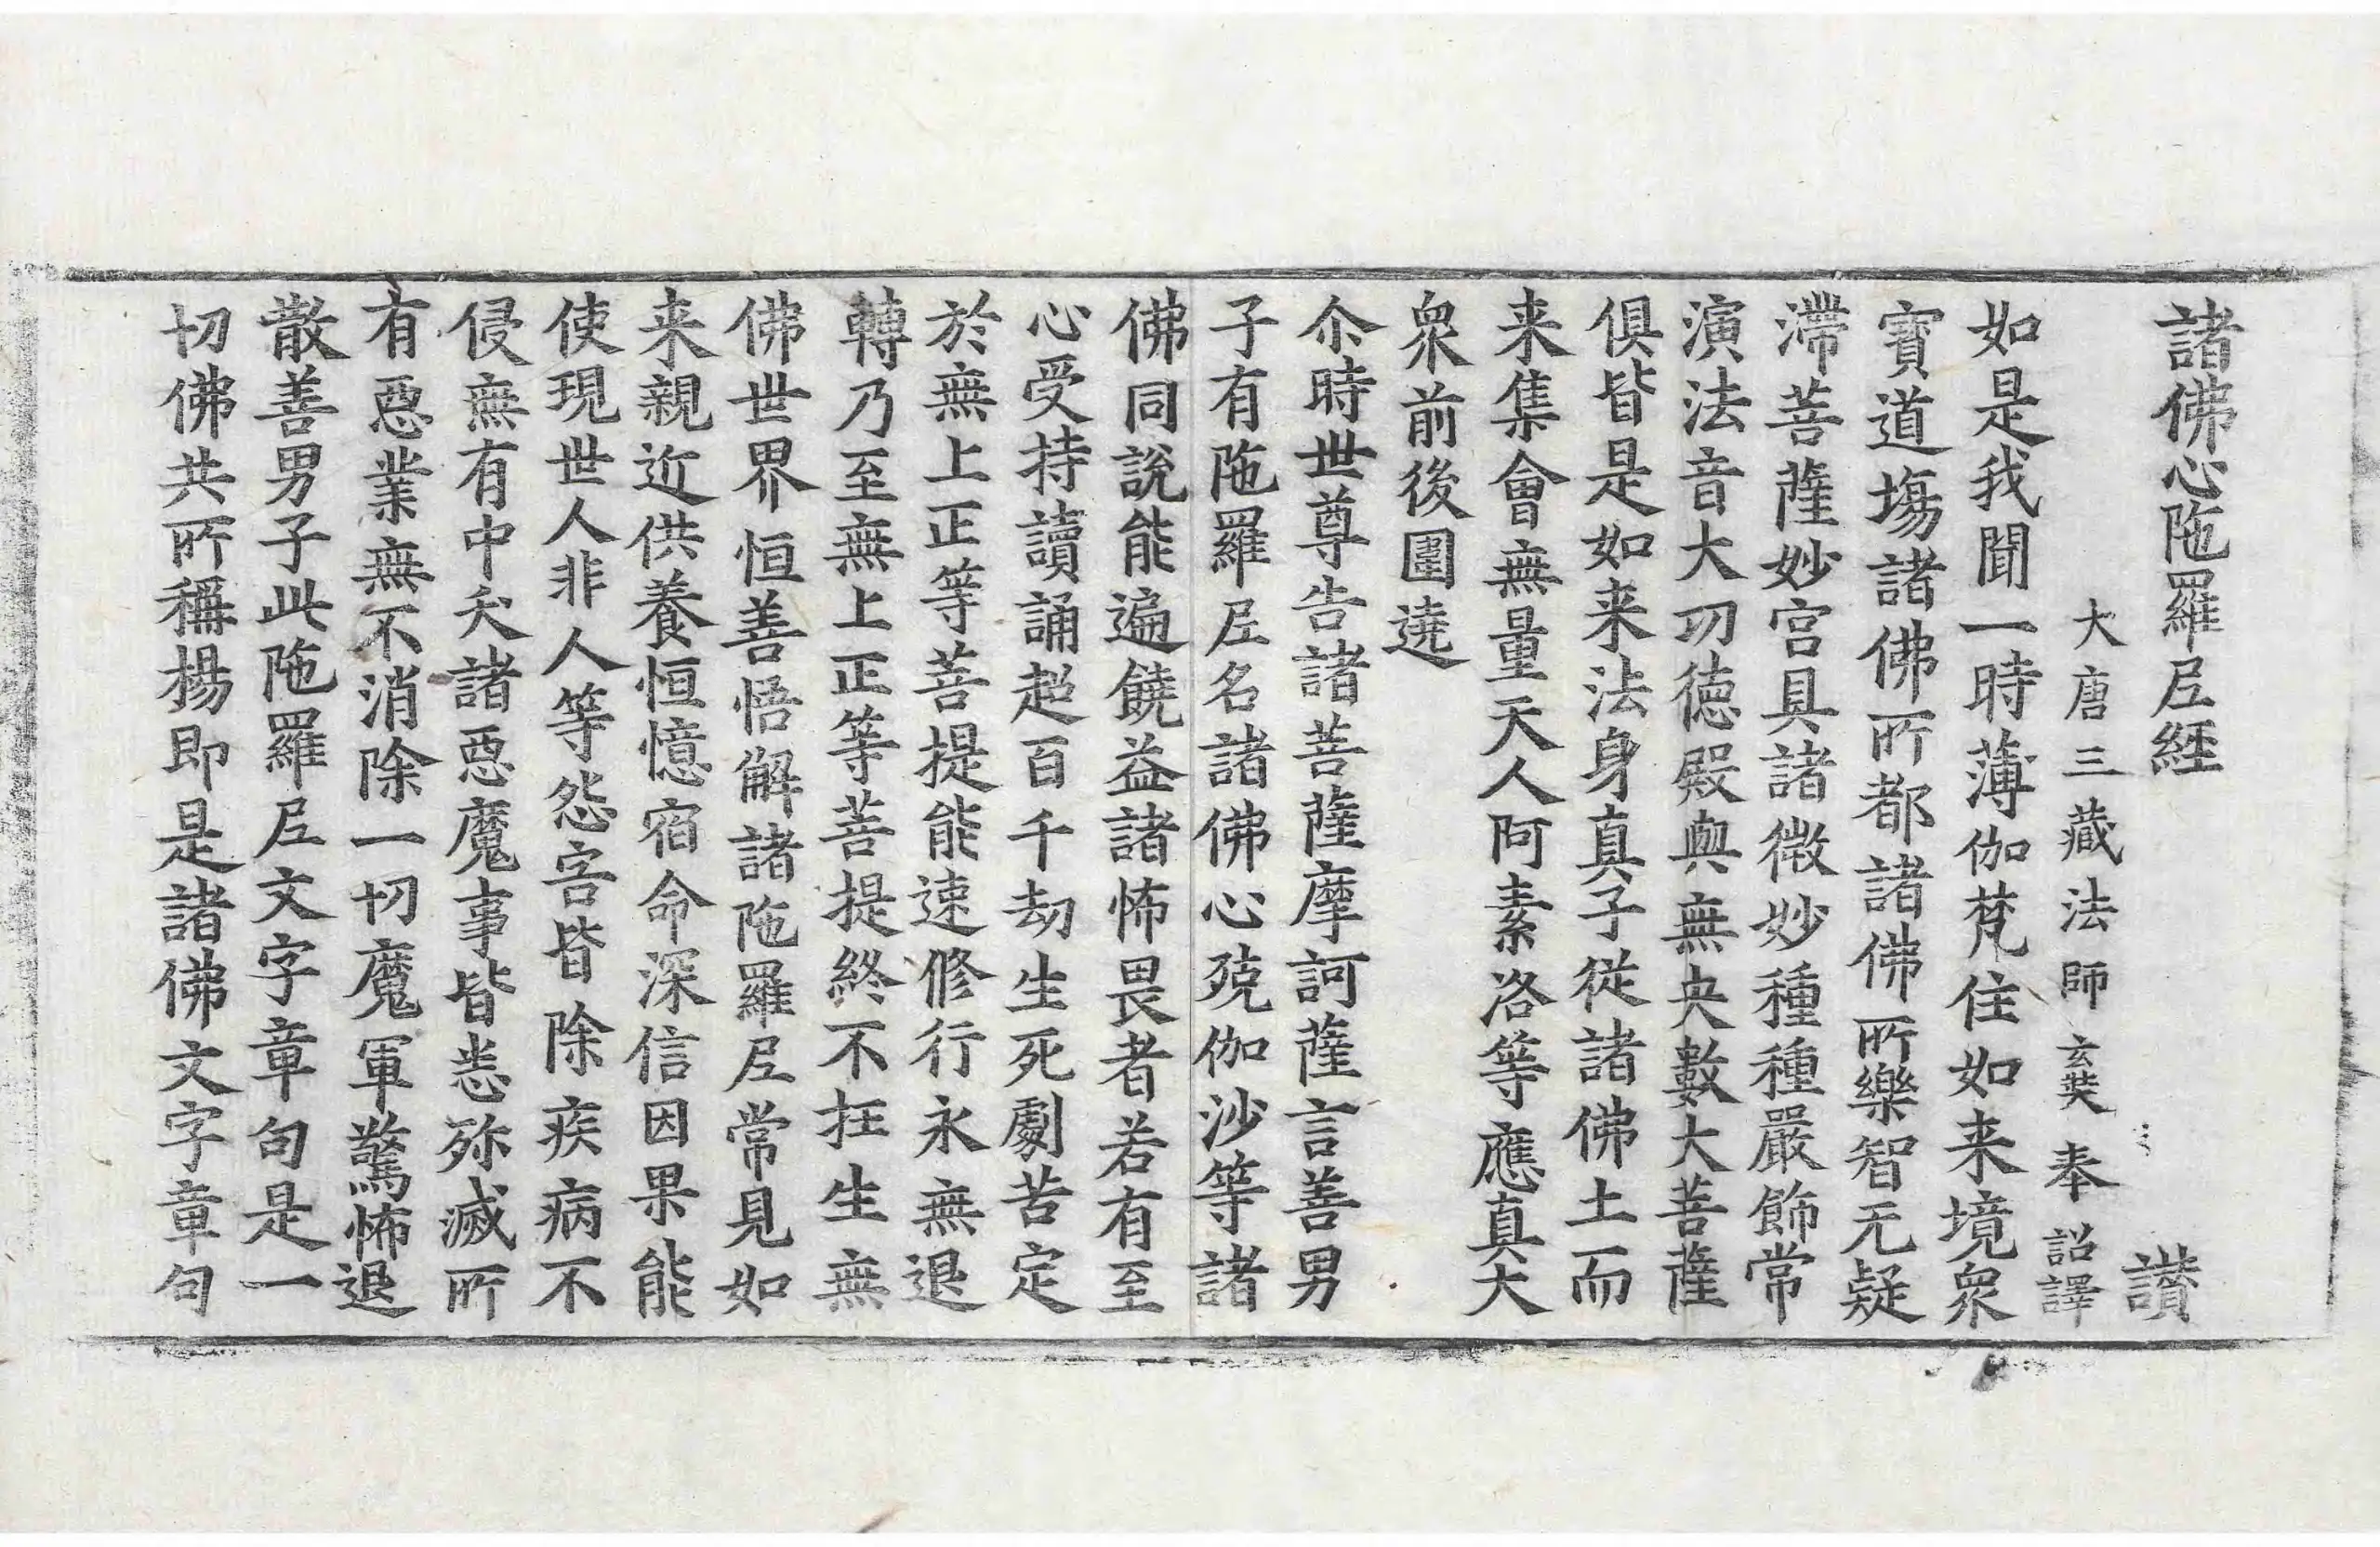 諸佛心陁羅尼經 讃
大唐三藏法師玄奘奉 詔譯
如是我聞一時薄伽梵住如来境衆
寶道塲諸佛所都諸佛所樂智无疑
滯菩薩妙宫具諸微妙種種嚴飾常
演法音大功德殿與無央數大菩薩
俱皆是如来法身真子從諸佛土而
来集會無量天人阿素洛等應真大
衆前後圍遶
尒時世尊告諸菩薩摩訶薩言善男
子有陁羅尼名諸佛心殑伽沙等諸
佛同説能遍饒益諸怖畏者若有至
心受持讀誦超百千劫生死劇苦定
於無上正等菩提能速修行永無退
轉乃至無上正等菩提終不抂生無
佛世界恒善悟解諸陁羅尼常見如
来親近供養恒憶宿命深信因果能
使現世人非人等怨害皆除疾病不
侵無有中夭諸惡魔事皆悉殄滅所
有惡業無不消除一切魔軍驚怖退
散善男子此陁羅尼文字章句是一
切佛共所稱揚即是諸佛文字章句